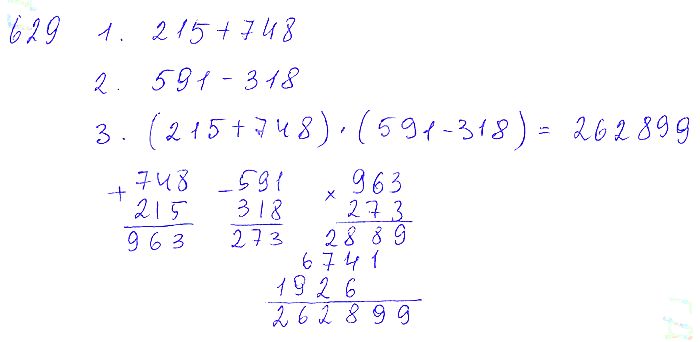 629 1. 215+748
2. 591-318
3. (215+748)·(591-318)=262899
+748 -591 ×963
215 318 273
963 273 2889
6741
1926
262899